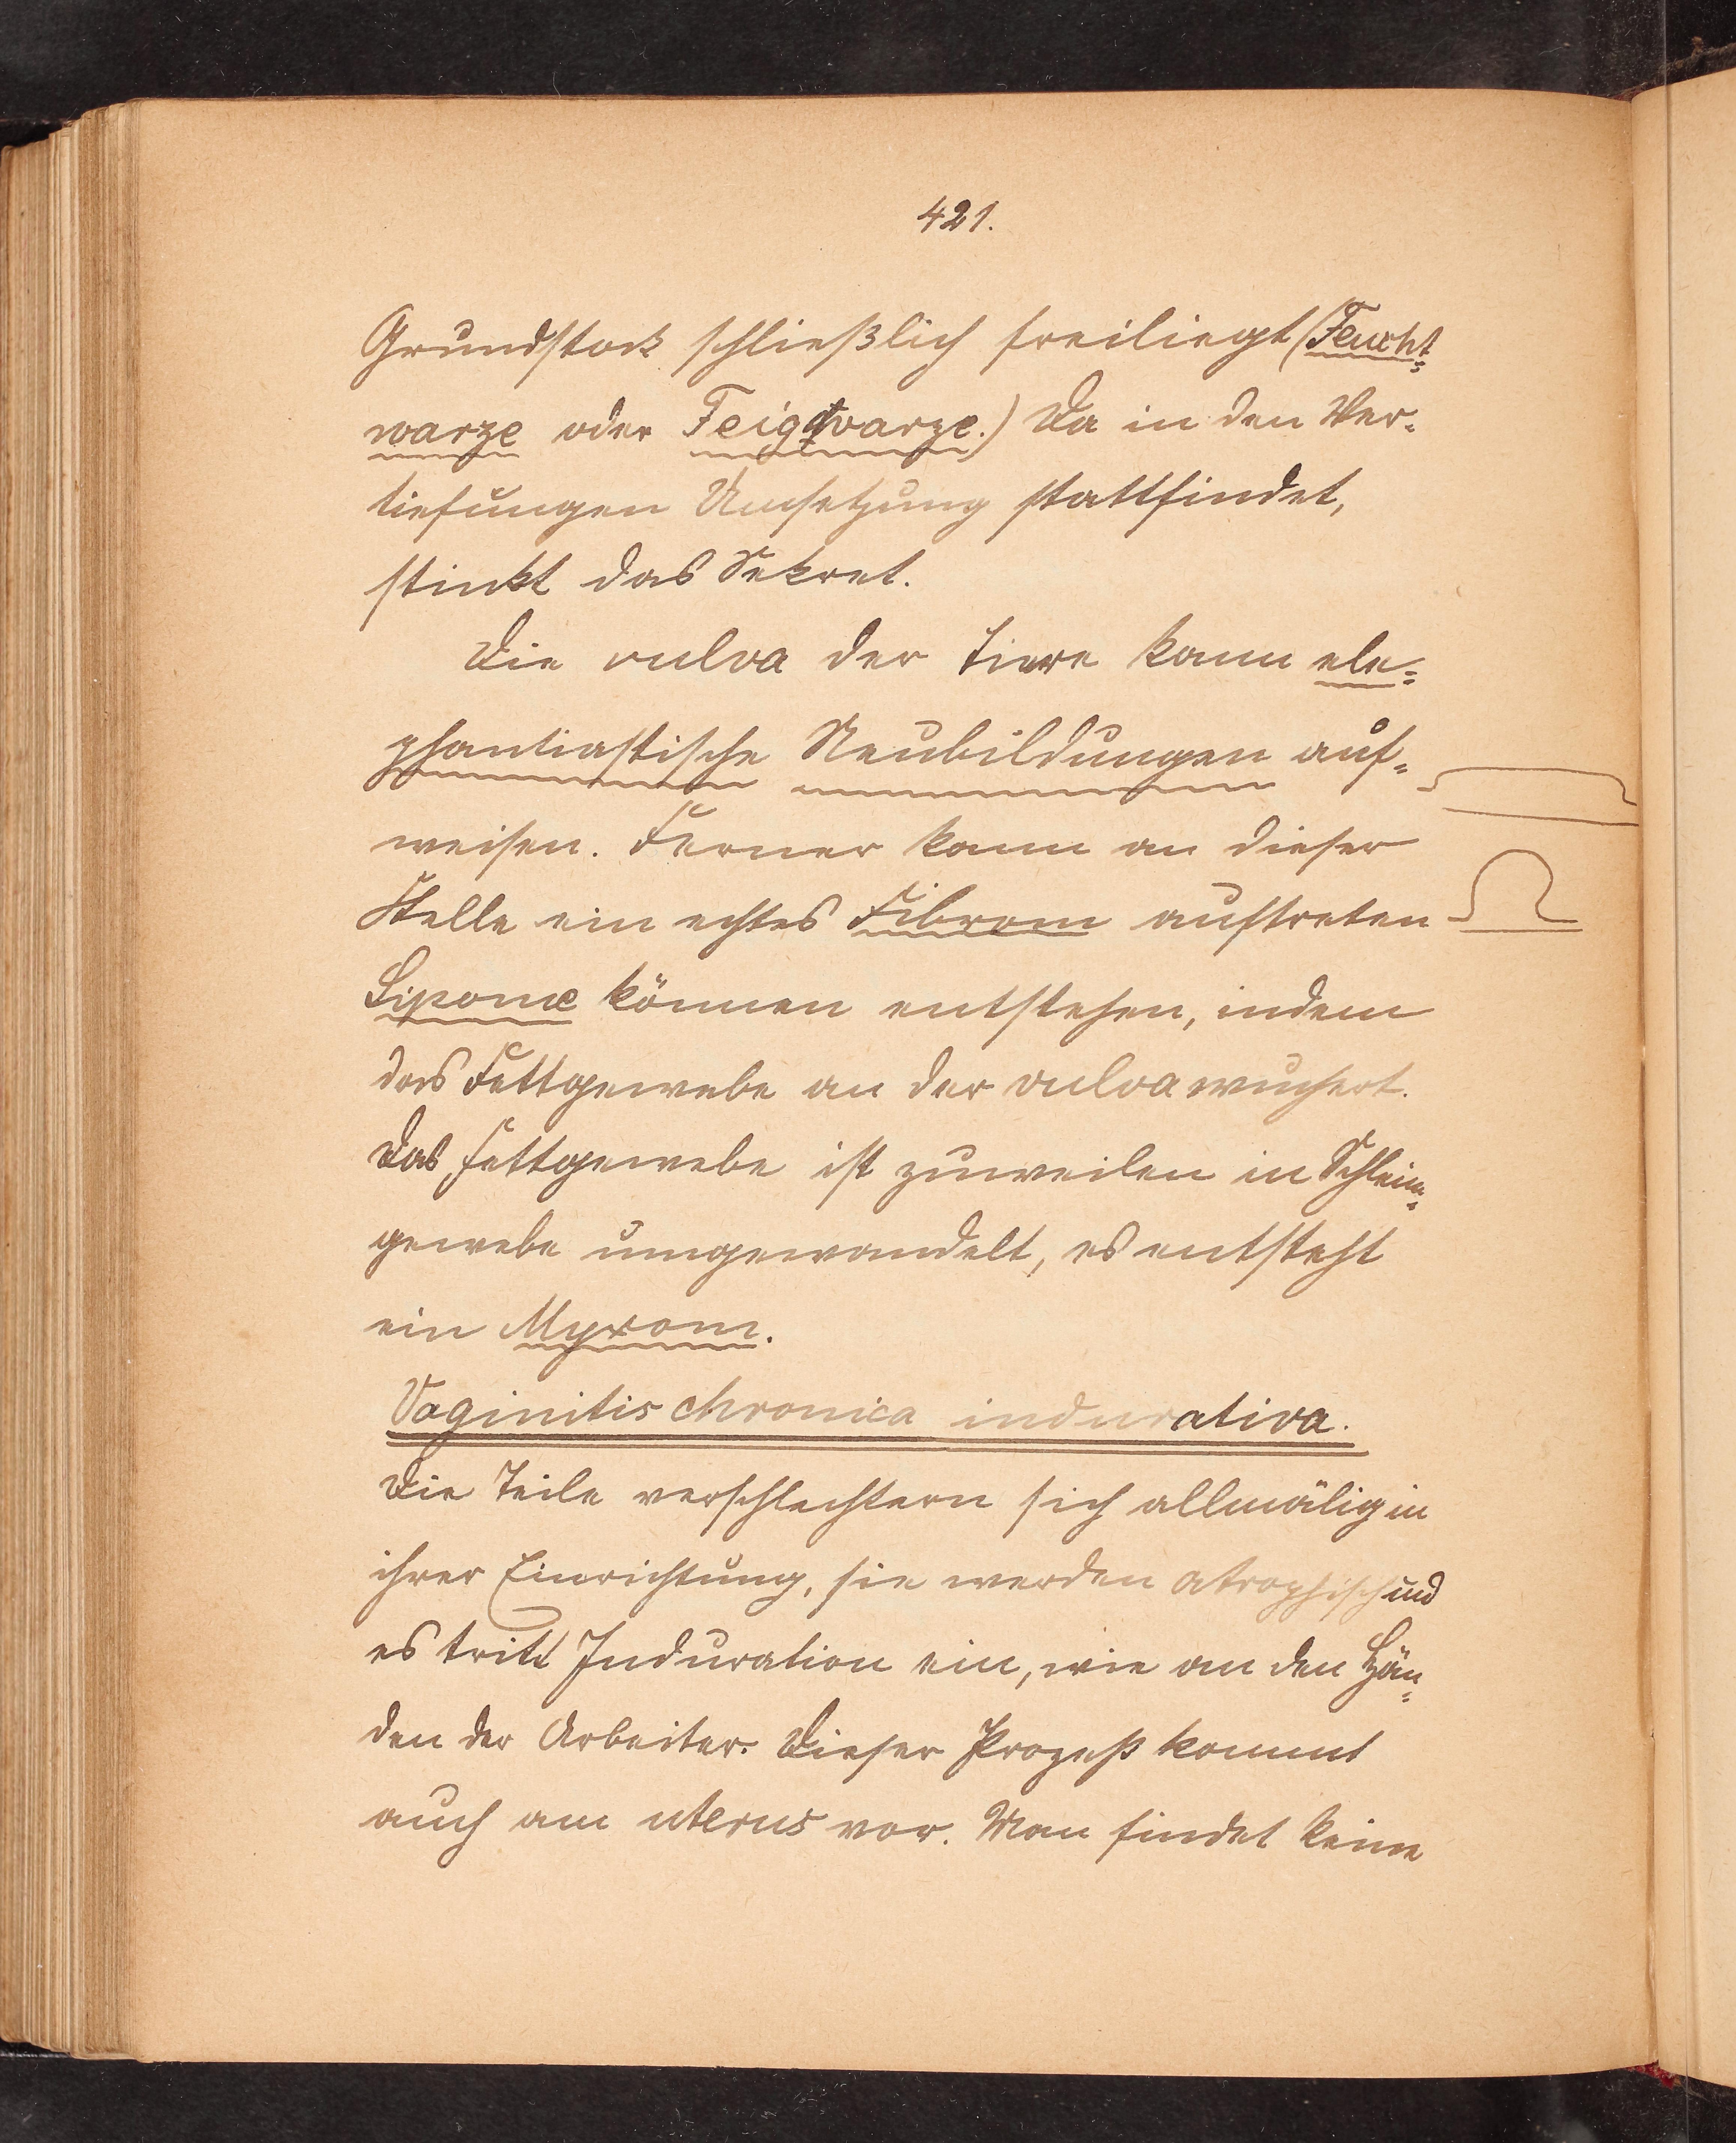 421.
Grundstock schließlich freiliegt (Feucht-
warze oder Feigwarze.) Da in den Ver-
tiefungen Umsetzung stattfindet,
stinkt das Sekret.
Die vulva der Tiere kann ele-
phantiastische Neubildungen auf-
weisen. Ferner kann an dieser
Stelle ein echtes Fibrom auftreten
Lipome können entstehen, indem
das Fettgewebe an der vulva wuchert.
Das Fettgewebe ist zuweilen in Schleim-
gewebe umgewandelt, es entsteht
ein Myxom.
Vaginitis chronica indurativa.
Die Teile verschlechtern sich allmälig in
ihrer Einrichtung, sie werden atrophisch und
es tritt Induration ein, wie an den Hän-
den der Arbeiter. Dieser Prozeß kommt
auch am uterus vor. Man findet keine